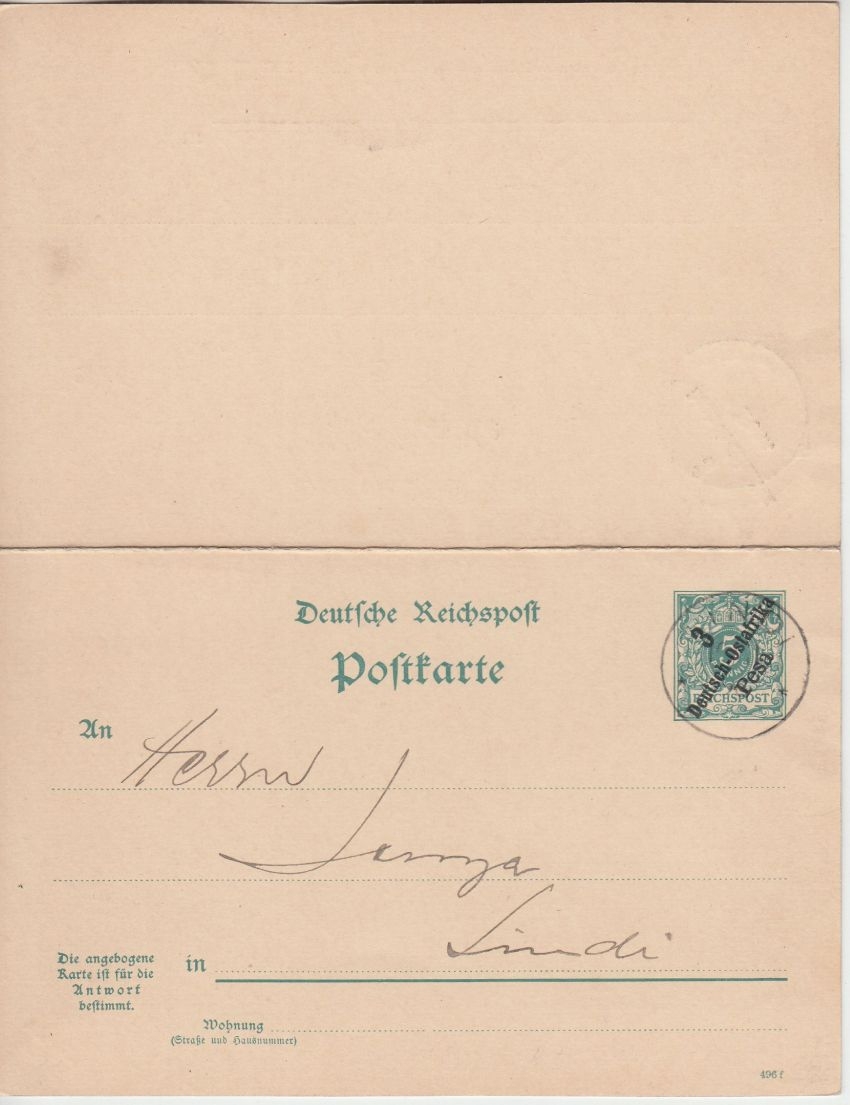 Deutsche Reichspost
Postkarte
3
Deutsch-Ostafrika
Pesa
5
REICHSPOST
An
Herrn
Lindi
Die angebogene
Karte ist für die
Antwort
bestimmt.
in
Wohnung
(Straße und Hausnummer)
496 f